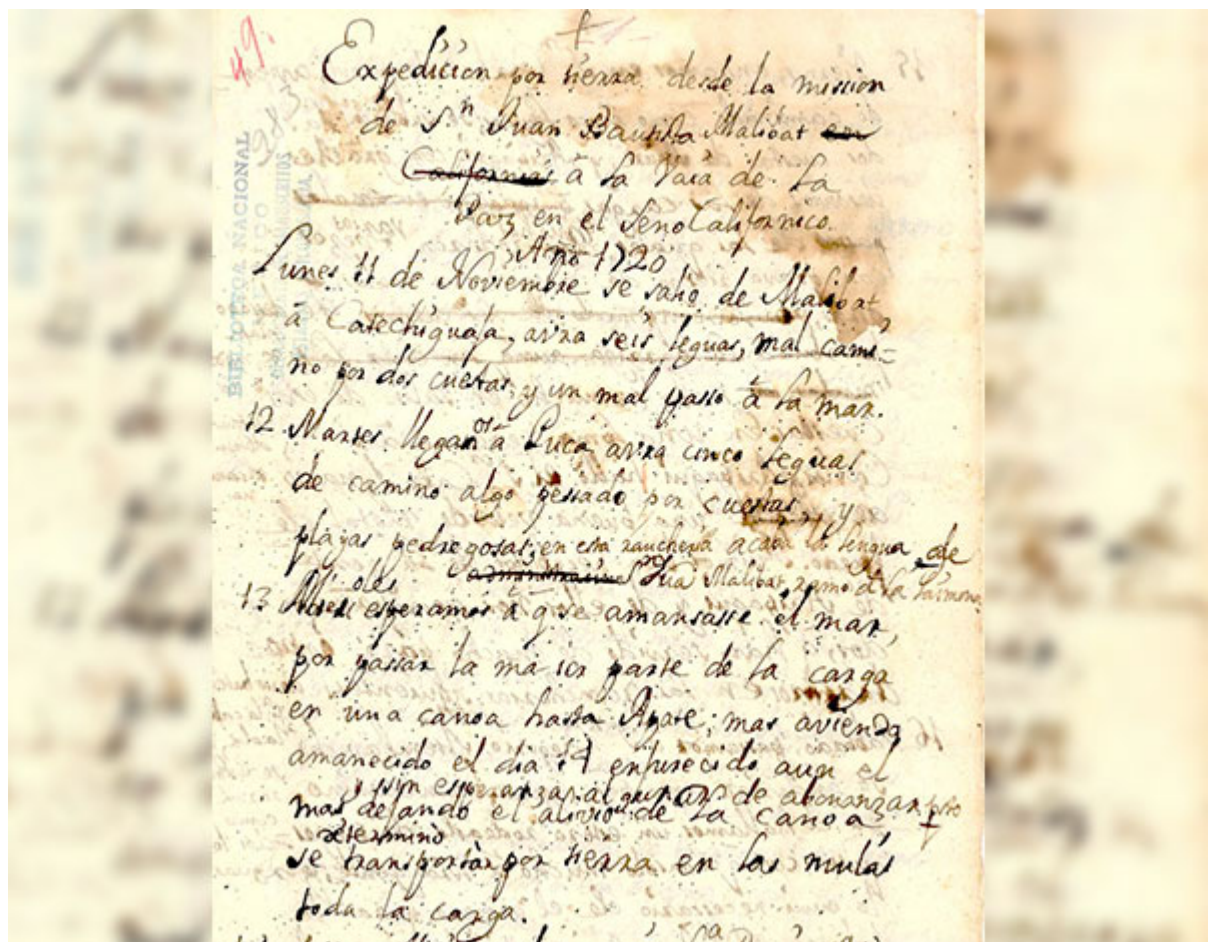 49.
Expedicion por tierra desde la mission
de Sn Juan Bautista Malibat en
Californias â la Vaia de la
Paz en el Seno Californico.
Año 1720
Lunes 11 de Noviembre se salio de Malibat
â Catechiguaja, avra seis leguas, mal cami=
no por dos cuestas, y un mal passo â la mar.
12 Martes llegamos â Pucâ avra cinco leguas
de camino algo pessado por cuestas y
playas pedregosas; en esta rancheria acaba la lengua de
Sn Jua Malibat, ramo d la
13 Miercoles esperamos â q se amansasse el mar,
por passar la maior parte de la carga
en una canoa hasta Apate; mas aviendo
amanecido el dia 14 enfurecido aun el
y sin esperanzas algunas de abonanzar
mar dejando el alivio de la canoa
se transportar por tierra en las mulas
determinò
toda la carga.
BIBLIOTECA NACIONAL
MEXICO